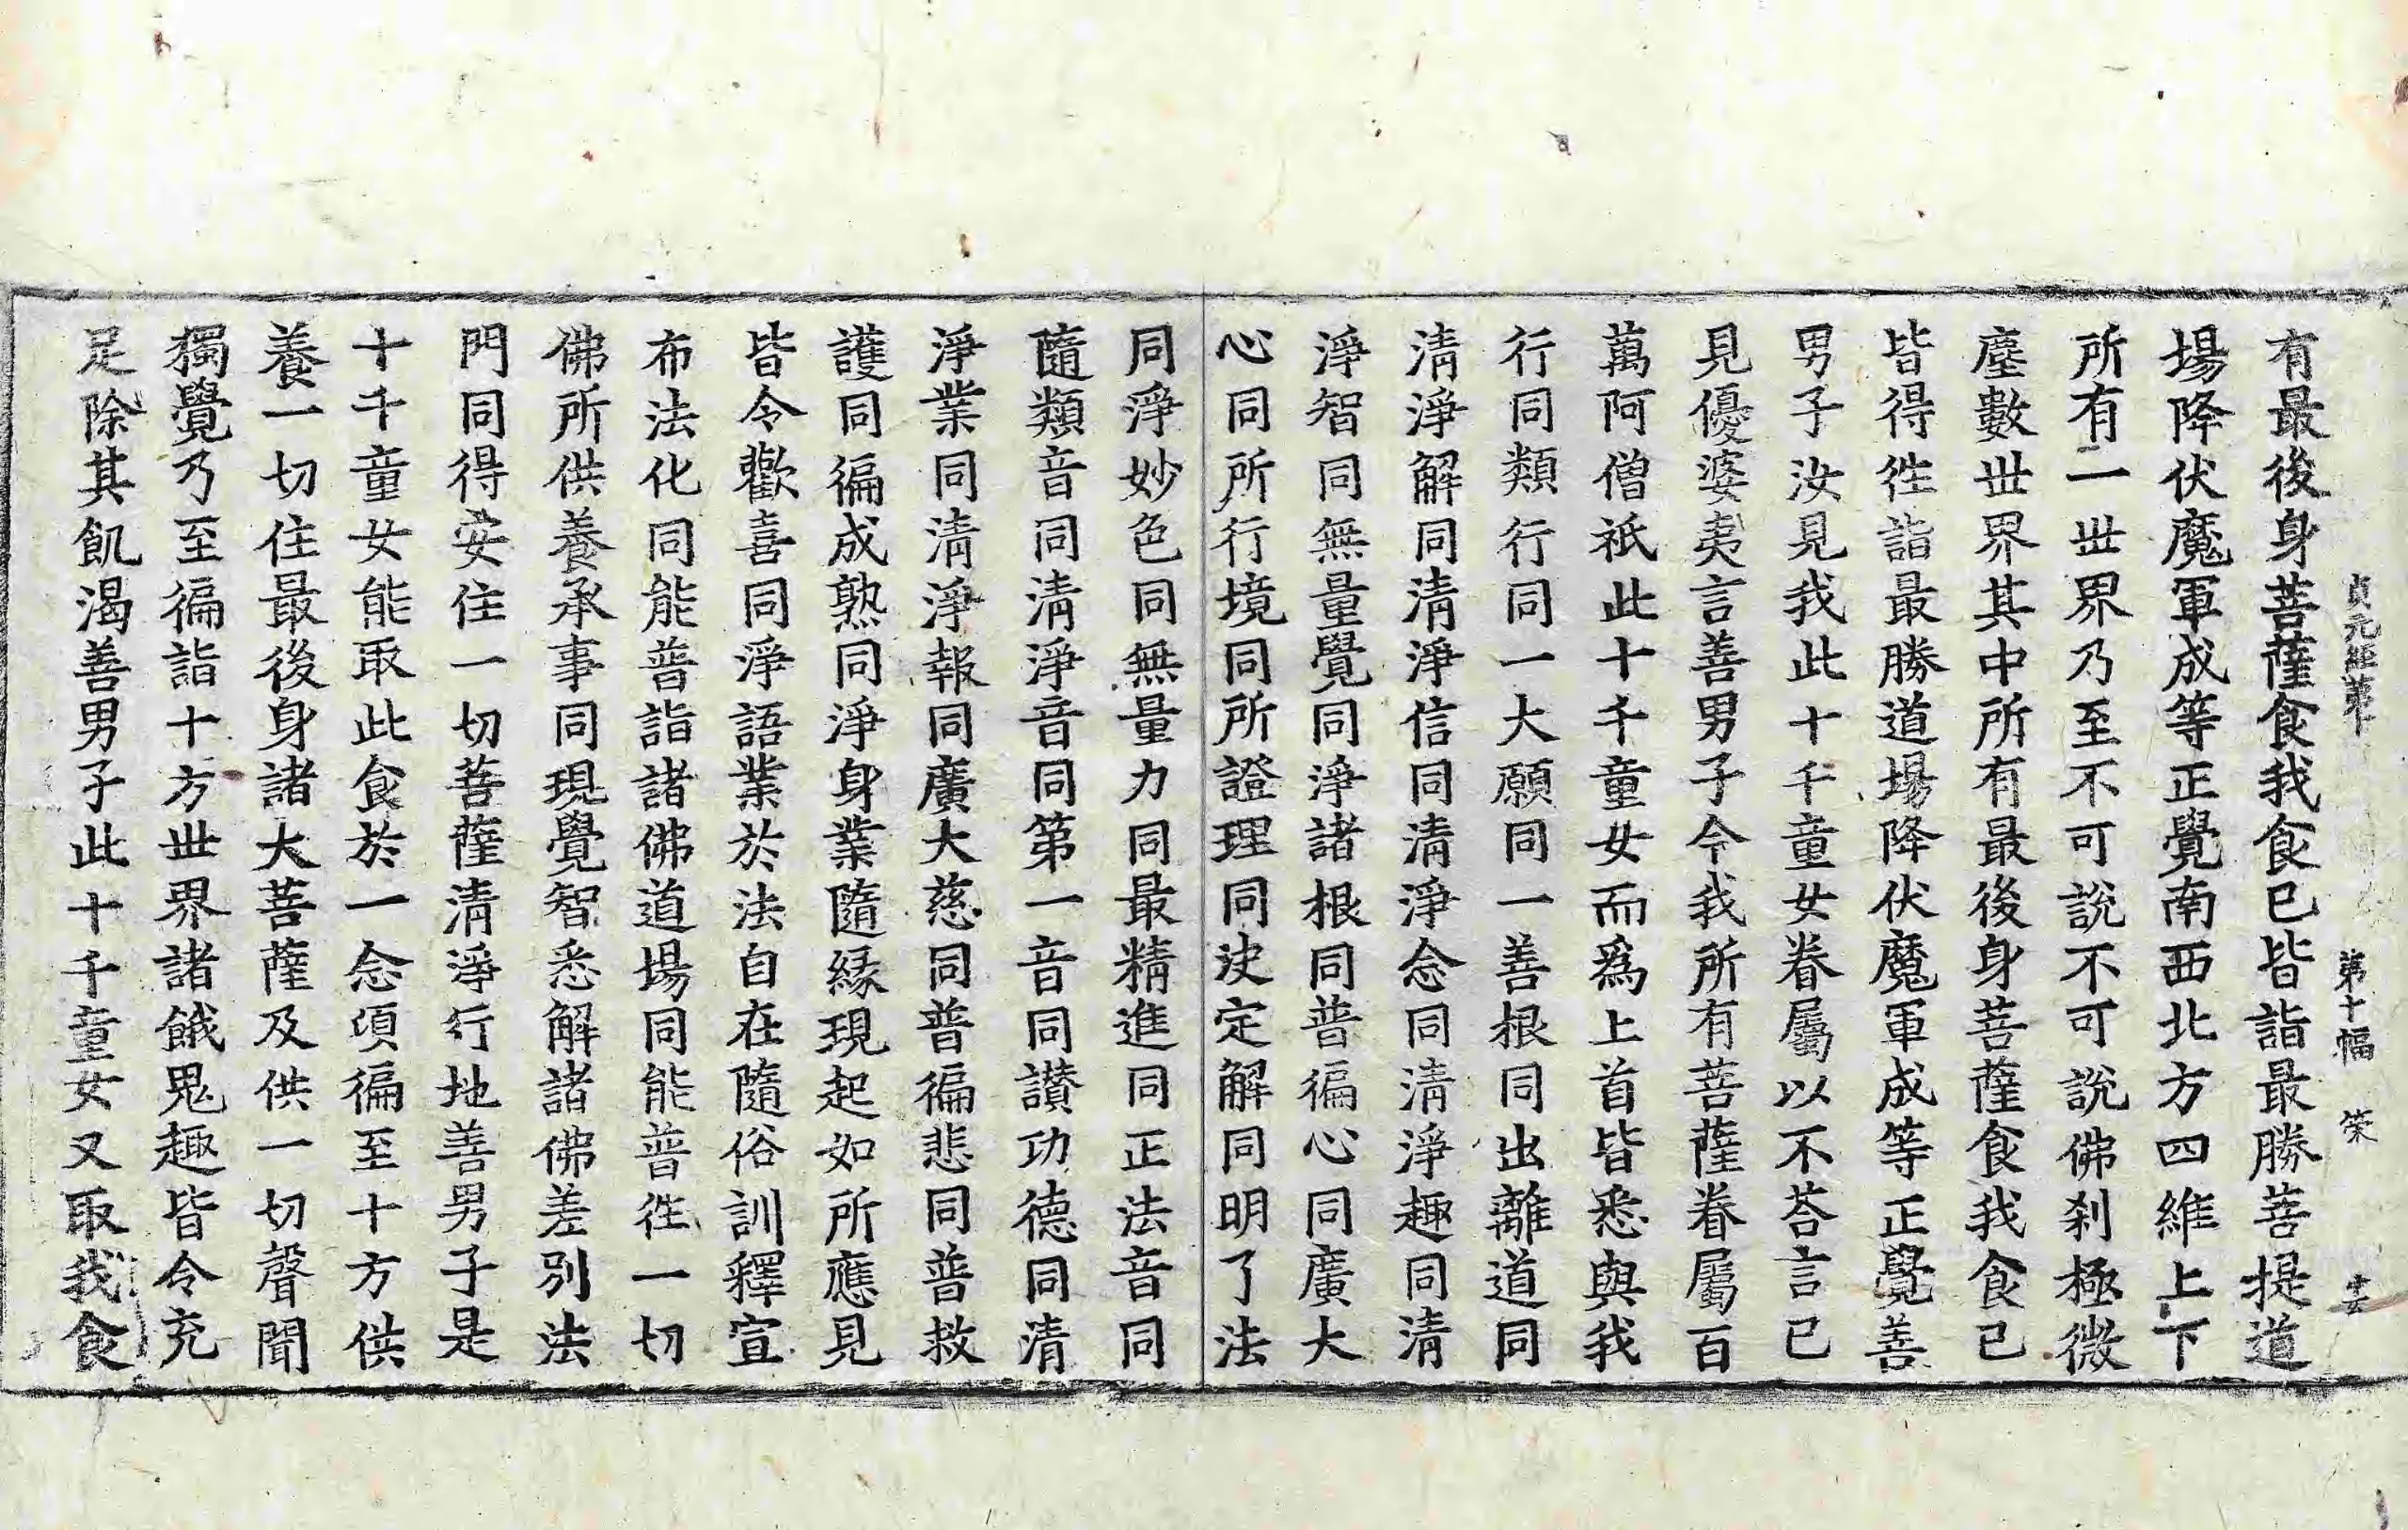 貞元經第十 第十幅 榮 十五
有最後身菩薩食我食已皆詣最勝菩提道
場降伏魔軍成等正覺南西北方四維上下
所有一世界乃至不可說不可說佛刹極微
塵數世界其中所有最後身菩薩食我食已
皆得徃詣最勝道場降伏魔軍成等正覺善
男子汝見我此十千童女眷屬以不荅言已
見優婆夷言善男子令我所有菩薩眷屬百
萬阿僧祇此十千童女而爲上首皆悉與我
行同類行同一大願同一善根同出離道同
清淨解同清淨信同清淨念同清淨趣同清
淨智同無量覺同淨諸根同普徧心同廣大
心同所行境同所證理同決定解同明了法
同淨妙色同無量力同最精進同正法音同
隨類音同清淨音同第一音同讃功德同清
淨業同清淨報同廣大慈同普徧悲同普救
護同徧成熟同淨身業隨緣現起如所應見
皆令歡喜同淨語業於法自在隨俗訓釋宣
布法化同能普詣諸佛道場同能普徃一切
佛所供養承事同現覺智悉解諸佛差別法
門同得安住一切菩薩清淨行地善男子是
十千童女能取此食於一念頃徧至十方供
養一切住最後身諸大菩薩及供一切聲聞
獨覺乃至徧詣十方世界諸餓鬼趣皆令充
足除其飢渴善男子此十千童女又取我食